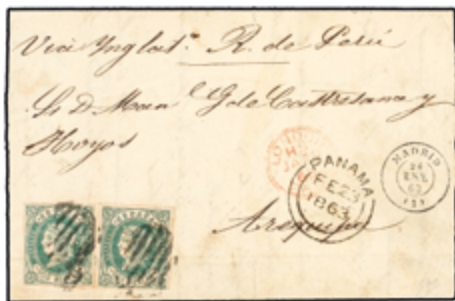 Via Inglat.ª R. de Perú
Sr D. Man.l G. de Castresana y
Hoyos
LONDON
PANAMA
FE 23
1863
MADRID
24
ENE
63
(1)
Arequipa